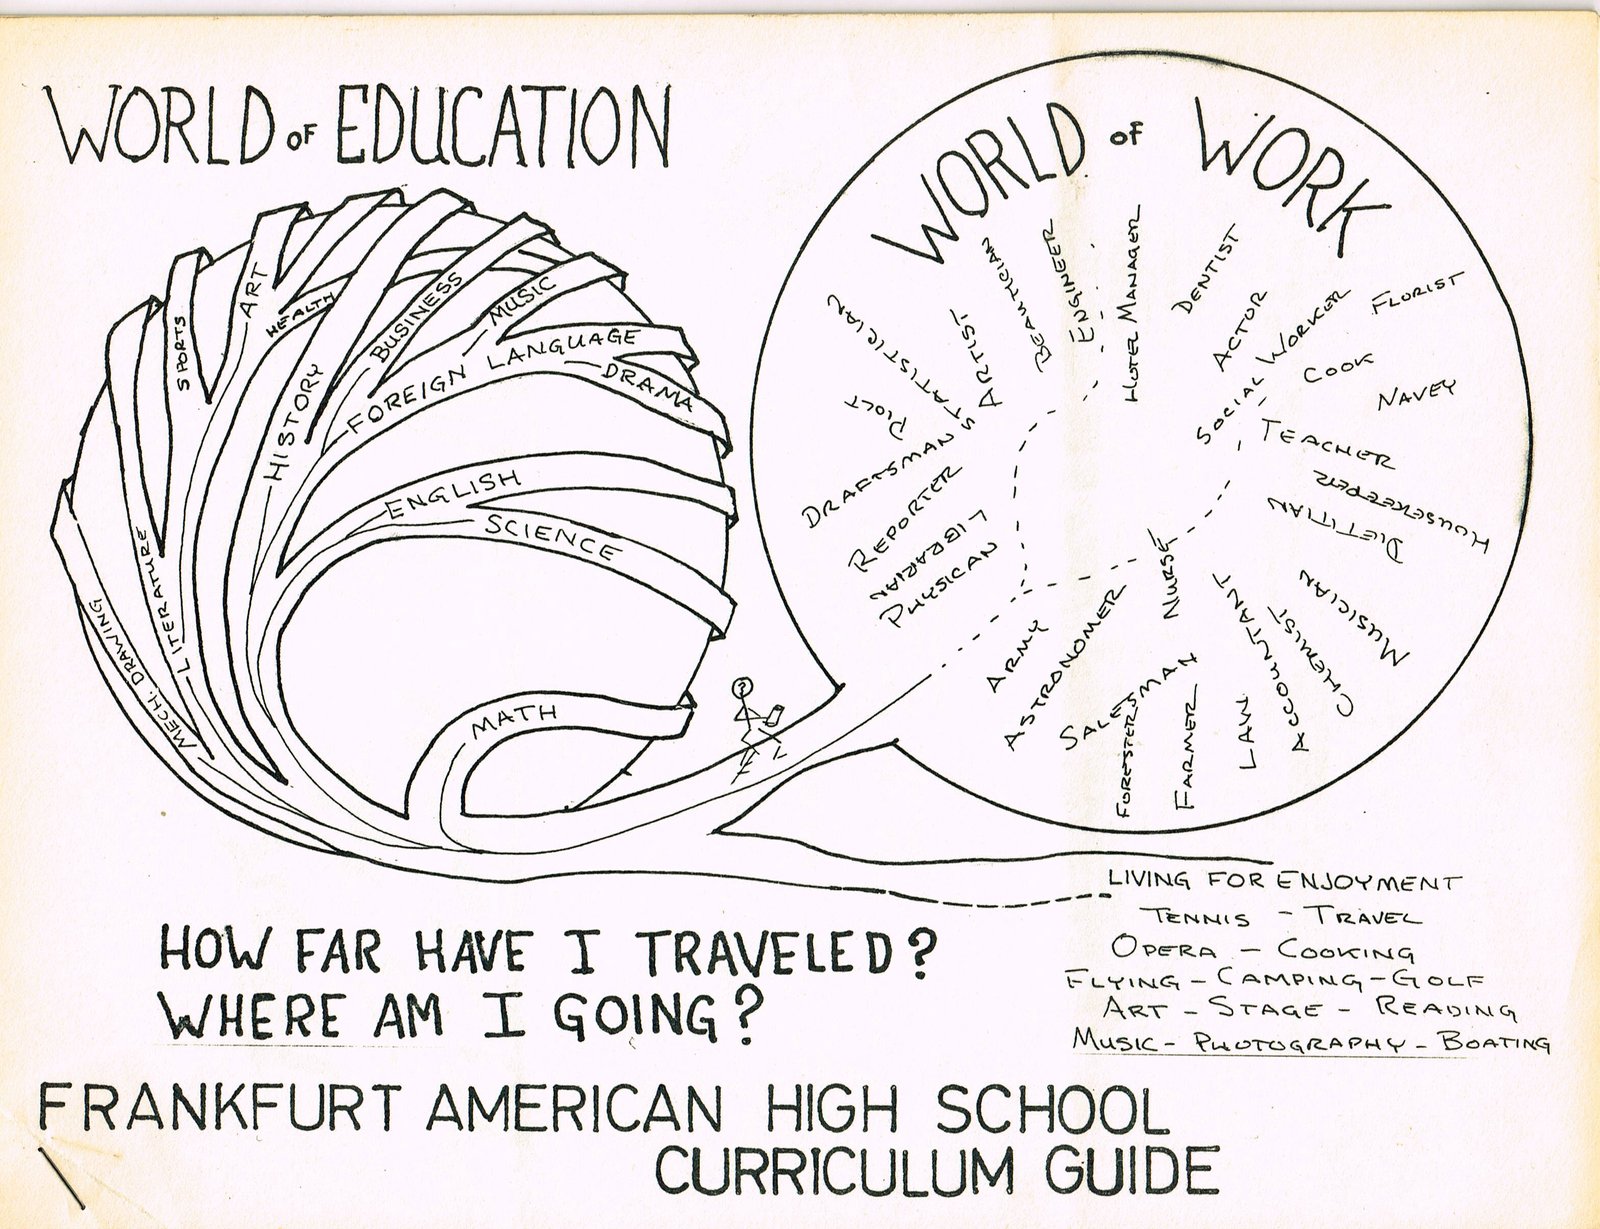 WORLD OF EDUCATION
SPORTS
ART
HEALTH
HISTORY
BUSINESS
MUSIC
FOREIGN LANGUAGE
DRAMA
ENGLISH
SCIENCE
MATH
LITERATURE
MECH. DRAWING
?
WORLD OF WORK
STATISTICIAN
ARTIST
BEAUTICIAN
ENGINEER
HOTEL MANAGER
DENTIST
ACTOR
SOCIAL WORKER
FLORIST
COOK
NAVEY
TEACHER
HOUSEKEEPER
DIETITIAN
MUSICIAN
CHEMIST
ACCOUNTANT
LAW
NURSE
FARMER
FORESTER
SALESMAN
ASTRONOMER
ARMY
PIOLT
DRAFTSMAN
REPORTER
LIBRARIAN
PHYSICAN
LIVING FOR ENJOYMENT
TENNIS - TRAVEL
OPERA - COOKING
FLYING - CAMPING - GOLF
ART - STAGE - READING
MUSIC - PHOTOGRAPHY - BOATING
HOW FAR HAVE I TRAVELED?
WHERE AM I GOING?
FRANKFURT AMERICAN HIGH SCHOOL
CURRICULUM GUIDE